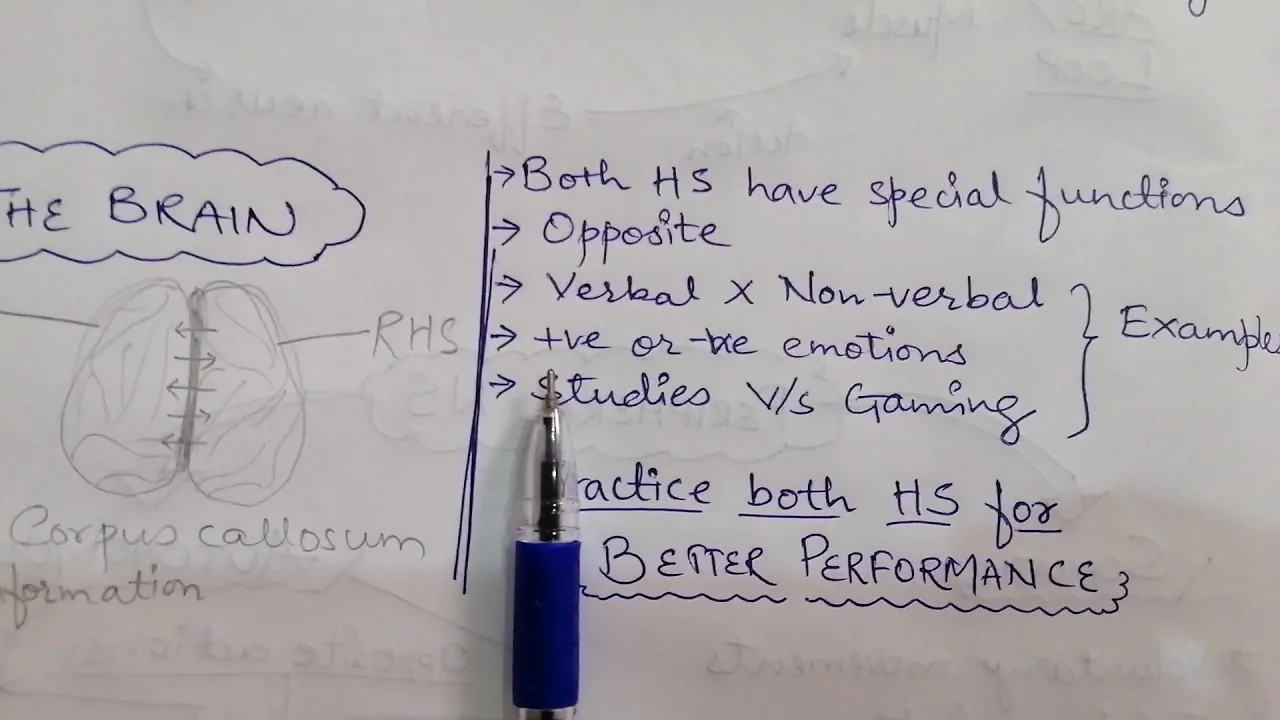 THE BRAIN
RHS
Corpus callosum
formation
→ Both HS have special functions
→ Opposite
→ Verbal x Non-verbal
→ +ve or -ve emotions
→ Studies V/s Gaming
Example
ractice both HS for
BETTER PERFORMANCE